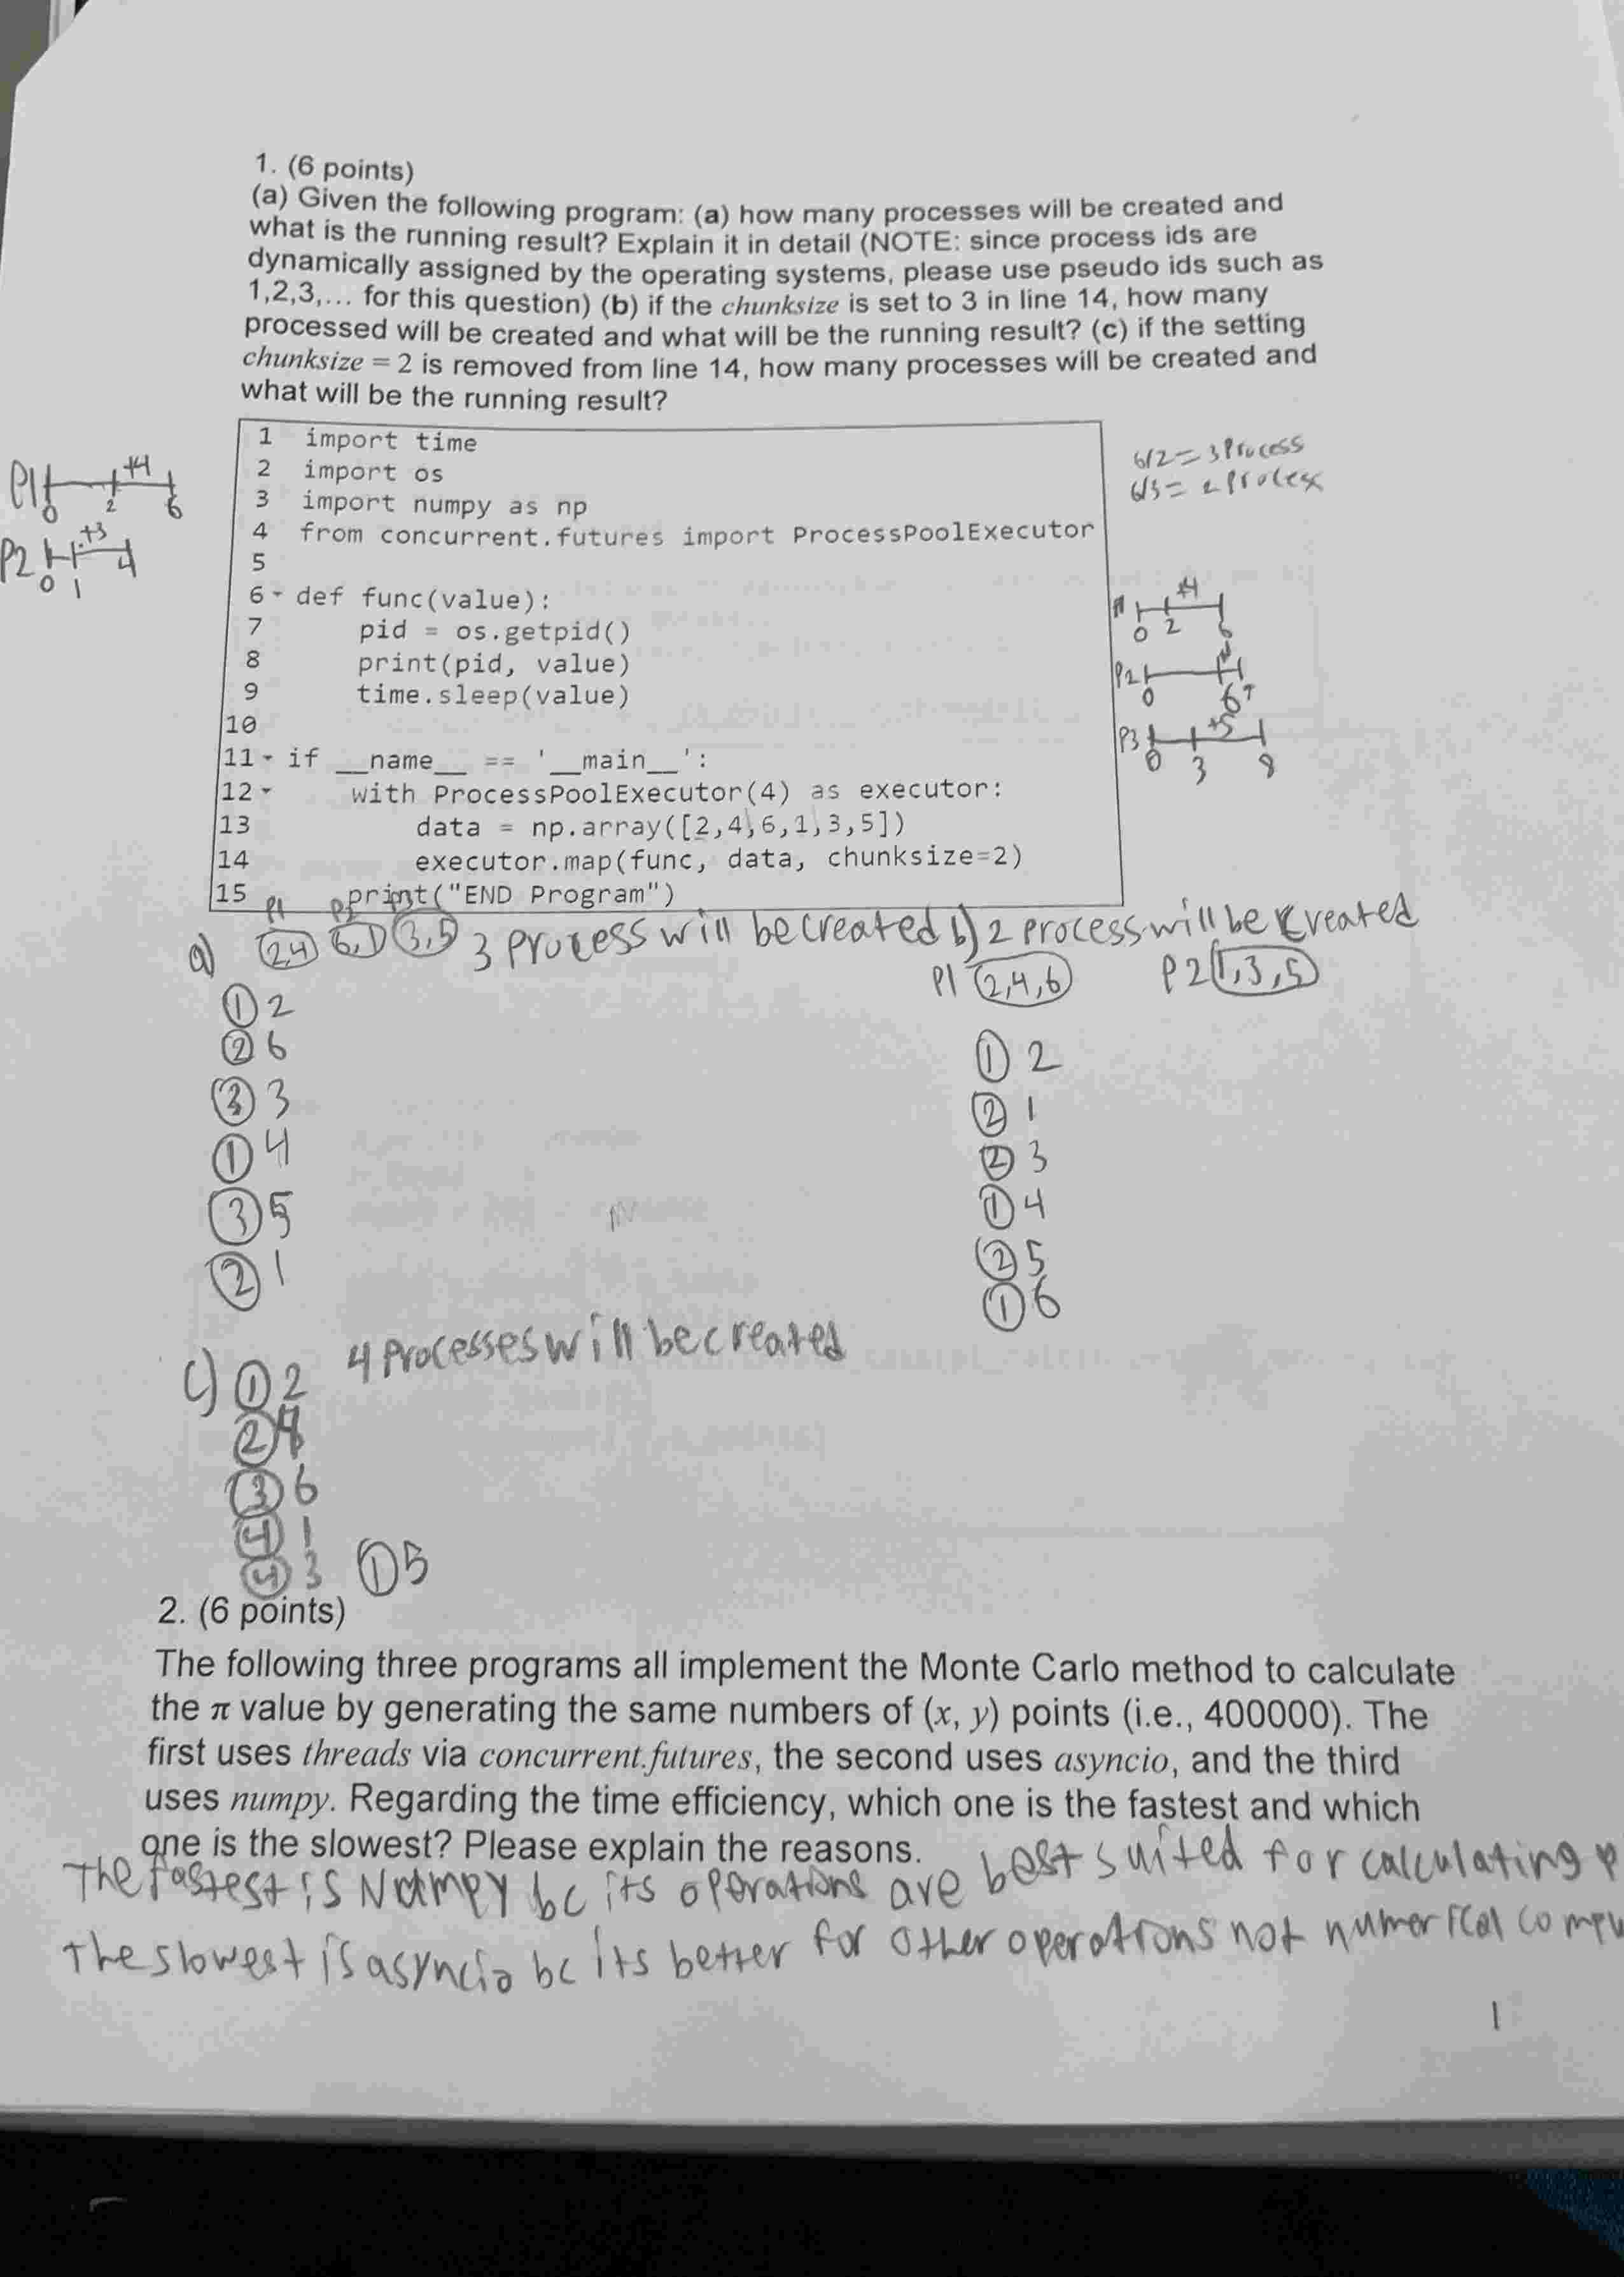 1. (6 points)
(a) Given the following program: (a) how many processes will be created and
what is the running result? Explain it in detail (NOTE: since process ids are
dynamically assigned by the operating systems, please use pseudo ids such as
1,2,3,... for this question) (b) if the chunksize is set to 3 in line 14, how many
processed will be created and what will be the running result? (c) if the setting
chunksize = 2 is removed from line 14, how many processes will be created and
what will be the running result?
1 import time
2 import os
3 import numpy as np
4 from concurrent.futures import ProcessPoolExecutor
5
6 def func(value):
7 pid = os.getpid()
8 print(pid, value)
9 time.sleep(value)
10
11 if __name__ == '__main__':
12 with ProcessPoolExecutor(4) as executor:
13 data = np.array([2,4,6,1,3,5])
14 executor.map(func, data, chunksize=2)
15 print("END Program")
P1 +4
0 2 6
P2 +3
0 1 4
6/2 = 3 Process
6/3 = 2 Process
P1 +4
0 2 6
P2
0 6 7
P3 +5
0 3 8
P1 P2
a) 2,4 6,1 3,5 3 process will be created b) 2 process will be created
P1 2,4,6 P2 1,3,5
① 2
② 6
③ 3
① 4
③ 5
② 1
① 2
② 1
② 3
① 4
② 5
① 6
4 processes will be created
c) ① 2
② 4
③ 6
④ 1
④ 3 ① 5
2. (6 points)
The following three programs all implement the Monte Carlo method to calculate
the π value by generating the same numbers of (x, y) points (i.e., 400000). The
first uses threads via concurrent.futures, the second uses asyncio, and the third
uses numpy. Regarding the time efficiency, which one is the fastest and which
one is the slowest? Please explain the reasons.
The fastest is Numpy bc its operations are best suited for calculating
The slowest is asyncio bc its better for other operations not numerical compu
1